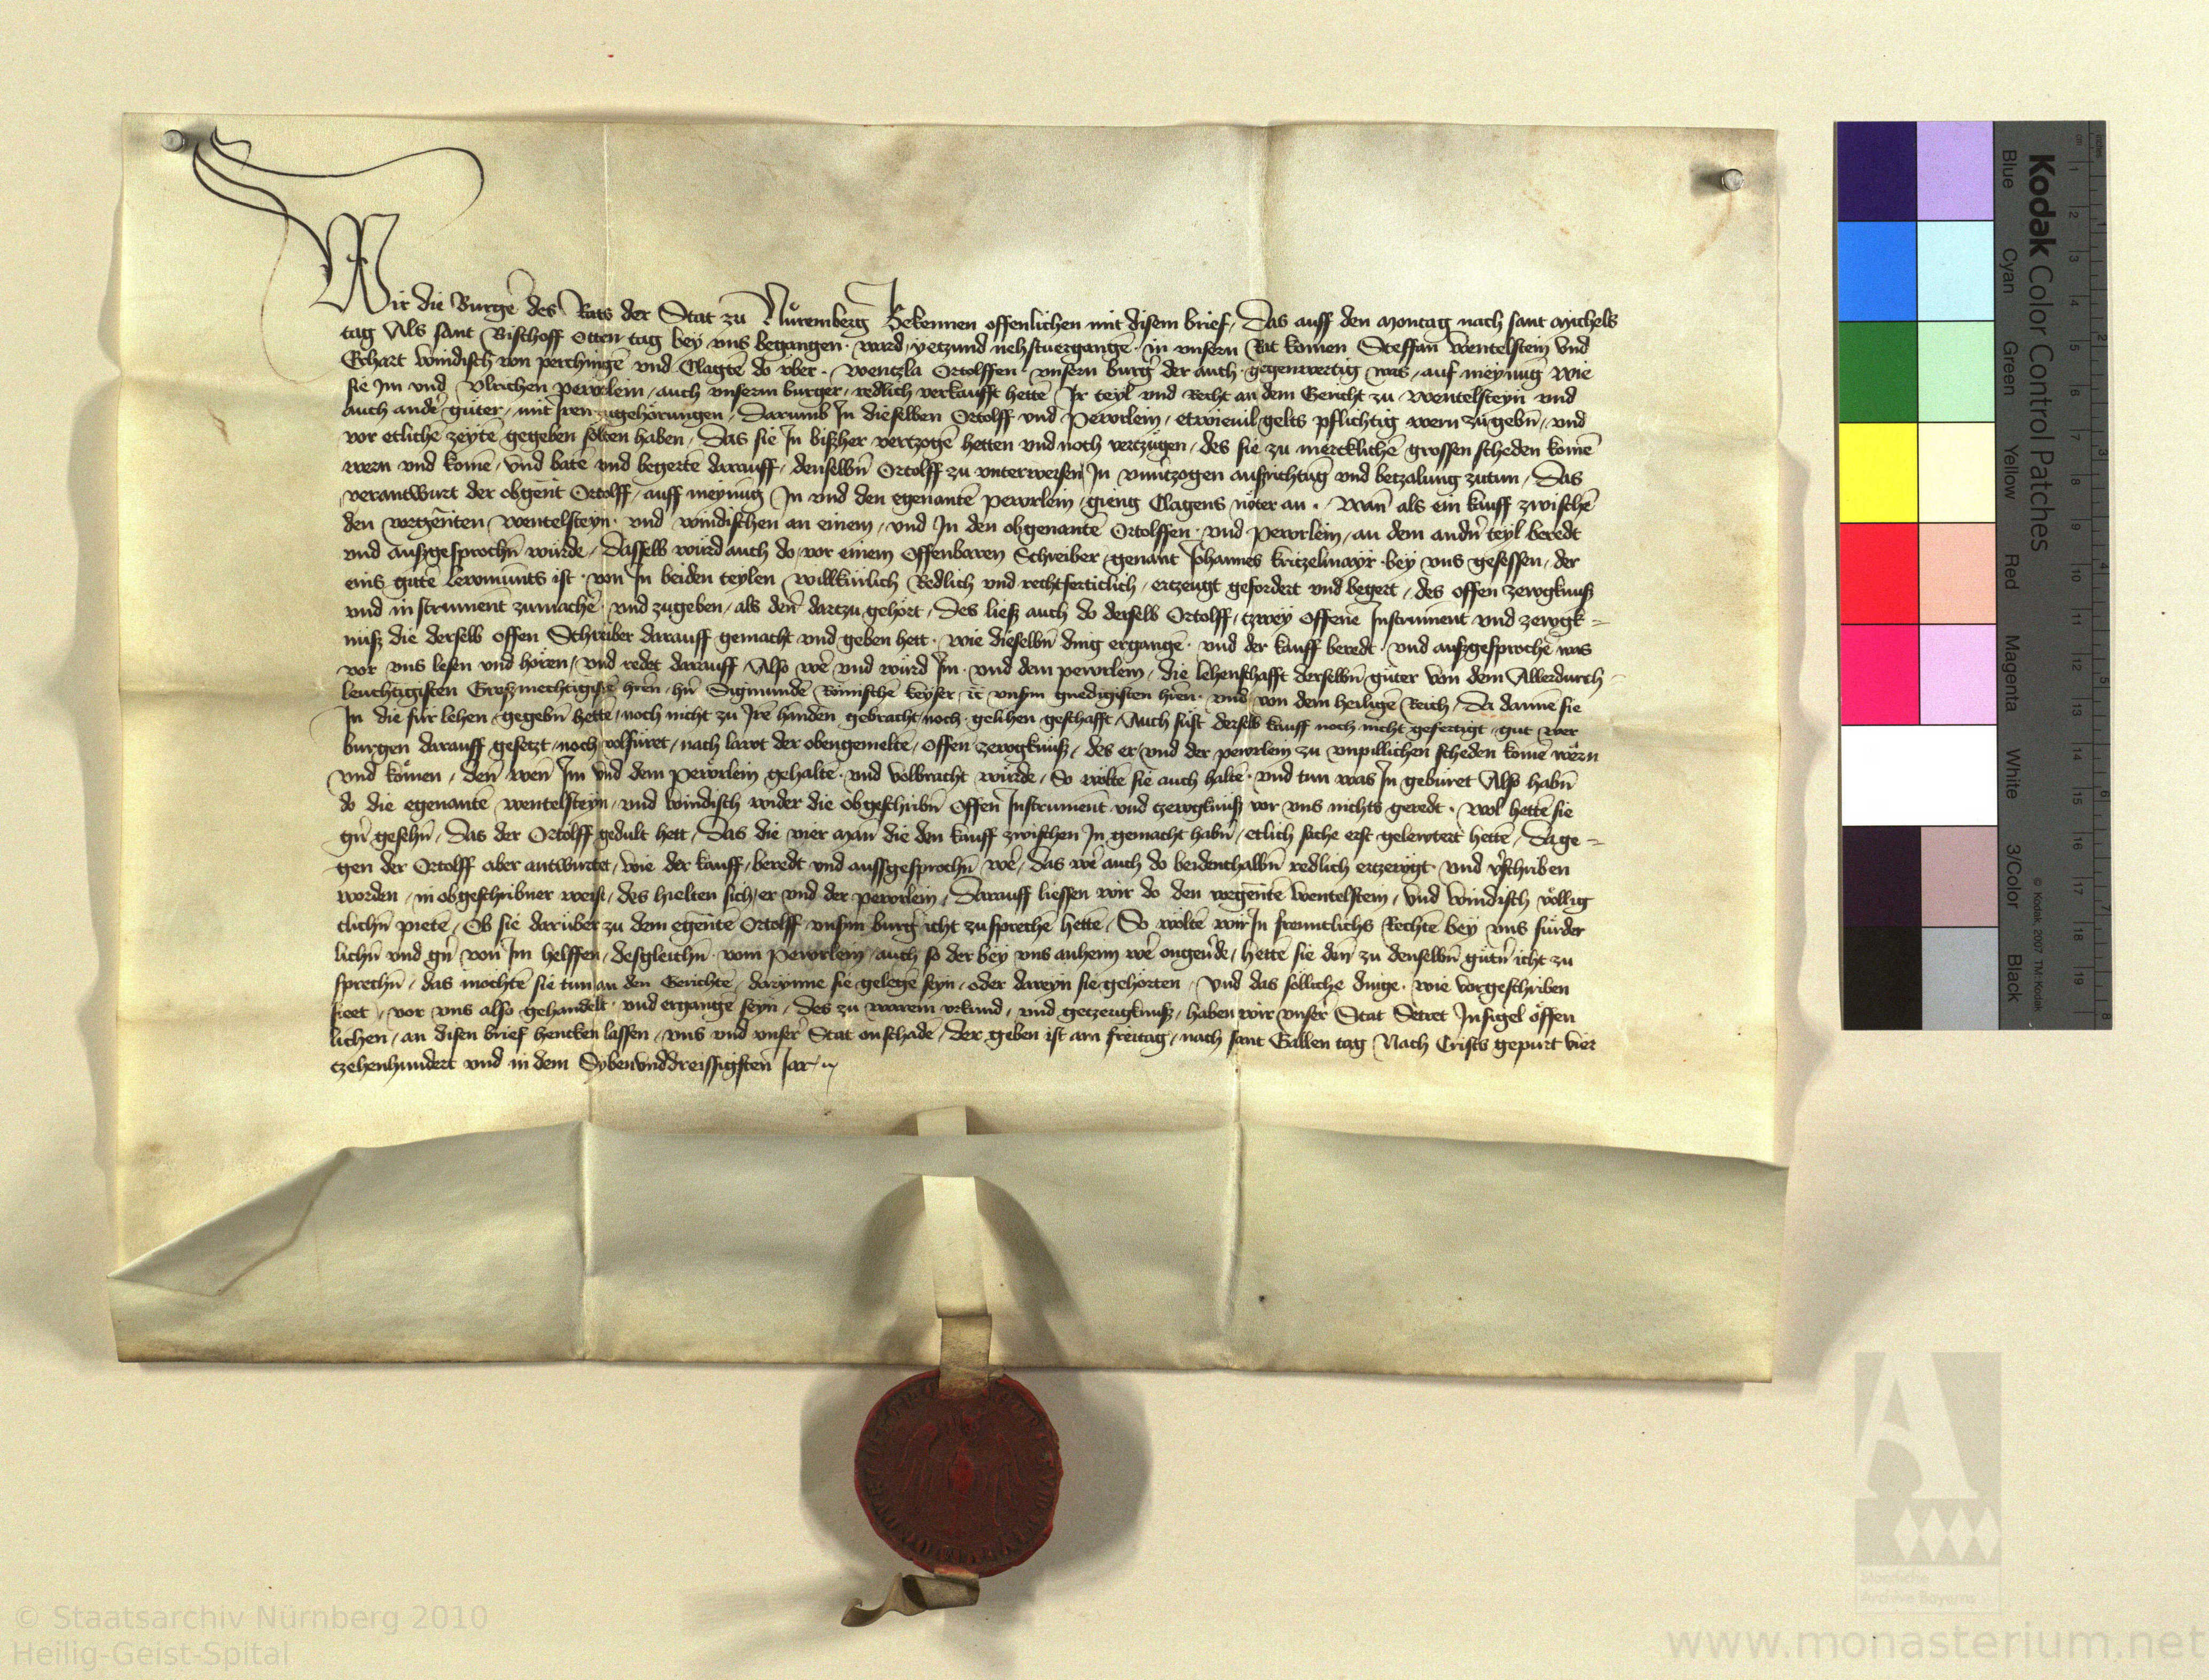 Wir die Burgē des Rats der Stat zu Nüremberg Bekennen offenlichen mit disem brief, Das auff den montag nach sant michels
tag Als sant Bischoff Otten tag bey uns begangen ward, yetzund nehstuergangē in unsern Rat komen Steffan Wentelstein und
Erhart Windisch von perchingē und Clagtē do uber Wentzla Ortolffen unsern burgᵉ der auch gegenwertig was, auf meynung wie
sie Im und Ulrichen peyrlein, auch unserm burger, redlich verkaufft hettē Ir teyl und Recht an dem Gericht zu Wentelsteyn und
auch andᵉ güter, mit Iren zugehörungen, Darumb In dieselben Ortolff und Peyrlein, etwieuil gelts pflichtig wern zugebn̄, und
vor etlichē zeytē gegeben solten haben, Das sie In bißher vertzogē hetten und noch vertzügen, des sie zu mercklichē grossen scheden komē
wern und komē, Und batē und begertē darauff, denselbn̄ Ortolff zu unterweisen In unuᵉtzogen außrichtūg und betzalung zutun, Das
verantwurt der obgen̄t Ortolff, auff meynūg In und den egenantē peyrlein, gieng Clagens nöter an. Wan̄ als ein kauff zwischē
den vorgen̄ten Wentelsteyn und Windischen an einem, und In den obgenantē Ortolffen und Peyrlein, an dem andn̄ teyl beredt
und außgesprochn̄ würde, Dasselb würd auch do vor einem Offenbaren Schreiber genant Johannes kritzelmayr bey uns gesessen, der
eins gutē lewmunts ist von In beiden teylen willkürlich Redlich und rechtferticlich, ertzeugt gefordert und begert, des offen zewgknuß
und instrument zumachē und zugeben, als den̄ dartzu gehört, Des ließ auch do derselb Ortolff, tzwey Offene Instrument und zewgk=
nuß die derselb offen Schreiber darauff gemacht und geben hett wie dieselbn̄ ding ergangē und der kauff beredt und außgesprochē was
vor uns lesen und hören, und redet darauff Also wē und würd Im und dem peyrlein, die lehenschafft derselbn̄ güter von dem Allerdurch=
leuchtigisten Großmechtigistē hren̄, hn̄ Sigmundē Römischē keyser ⁊c unsm̄ gnedigisten hren̄ und von dem heiligē Reich, Da dannē sie
In die für lehen gegebn̄ hettē, noch nicht zu Irē handen gebracht, noch gelihen geschafft, Auch süst derselb kauff noch nicht gefertigt gut wer
burgen darauff gesetzt, noch volfüret, nach lawt der obengemeltē, offen zewgknuß, des er und der peyrlein zu unpillichen scheden komē wern
und komen, den̄ wen̄ Im und dem peyrlein gehaltē und volbracht würde, So woltē sie auch haltē und tun was In gebüret Also habn̄
do die egenantē Wentelsteyn, und Windisch wider die obgeschribn̄ Offen Instrument und zewgknuß vor uns nichts geredt. Wol hettē sie
gn̄ gesehn̄, Das der Ortolff gedult hett, Das die vier man̄ die den kauff zwischen In gemacht habn̄, etlich sache erst gelewtert hettē, Dage=
gen der Ortolff aber antwurtet, wie der kauff, beredt und aussgesprochn̄ wē, das wē auch do beidenthalbn̄ redlich ertzewgt und vᵉschriben
worden, in obgeschribner weise, des hielten sich er und der peyrlein, Darauff liessen wir do den vorgen̄tē Wentelstein, und Windisch völlig
clichn̄ pietē, Ob sie darüber zu dem egen̄tē Ortolff unsm̄ burgᵉ icht zusprechē hettē, So woltē wir In freuntlichs Rechtē bey uns fürder
lichn̄ und gn̄ von Im helffen, desgleichn̄ vom Peyrlein, auch so der bey uns anheim wē ongeuᵉde, hettē sie dan̄ zu denselbn̄ gütn̄ icht zu
sprechn̄, das möchtē sie tun an den Gerichtē, darynne sie gelegē seyn, oder dareyn sie gehörten, Und das sölliche dinge wie vorgeschriben
steet, vor uns also gehandelt und ergangē seyn, Des zu warem urkund, und getzeugknuß, haben wir unser Stat Secret Insigel offen
lichen, an disen brief hencken lassen, uns und unser Stat on schadē, Der geben ist am freitag, nach sant Gallen tag Nach Crists gepurt vier
czehenhundert und in dem Sybenunddreissigsten Jar
Kodak Color Control Patches
Blue Cyan Green Yellow Red Magenta White 3/Color Black
© Kodak, 2007 TM: Kodak
© Staatsarchiv Nürnberg 2010
Heilig-Geist-Spital
Staatliche
Archive Bayerns
www.monasterium.net